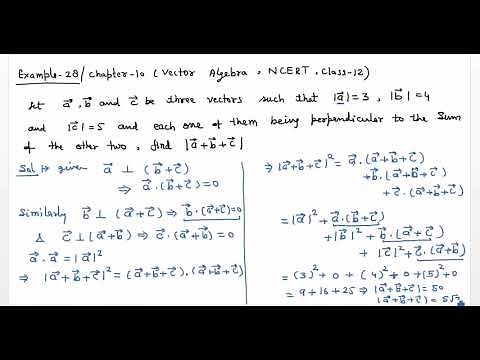 Example-28/ Chapter-10 (Vector Algebra, NCERT, Class-12)
let a⃗, b⃗, and c⃗ be three vectors such that |a⃗|=3, |b⃗|=4
and |c⃗|=5 and each one of them being perpendicular to the Sum
of the other two, find |a⃗+b⃗+c⃗|
Sol given a⃗ ⊥ (b⃗+c⃗)
⇒ a⃗.(b⃗+c⃗)=0
Similarly b⃗ ⊥ (a⃗+c⃗) ⇒ b⃗.(a⃗+c⃗)=0
⊥ c⃗ ⊥ (a⃗+b⃗) ⇒ c⃗.(a⃗+b⃗)=0
a⃗.a⃗ = |a⃗|²
⇒ |a⃗+b⃗+c⃗|² = (a⃗+b⃗+c⃗).(a⃗+b⃗+c⃗)
⇒ |a⃗+b⃗+c⃗|² = a⃗.(a⃗+b⃗+c⃗)
+b⃗.(a⃗+b⃗+c⃗)
+c⃗.(a⃗+b⃗+c⃗)
= |a⃗|²+a⃗.(b⃗+c⃗)
+|b⃗|²+b⃗.(a⃗+c⃗)
+|c⃗|²+c⃗.(a⃗+b⃗)
= (3)²+0+(4)²+0+(5)²+0
= 9+16+25 ⇒ |a⃗+b⃗+c⃗|²=50
|a⃗+b⃗+c⃗|=5√2